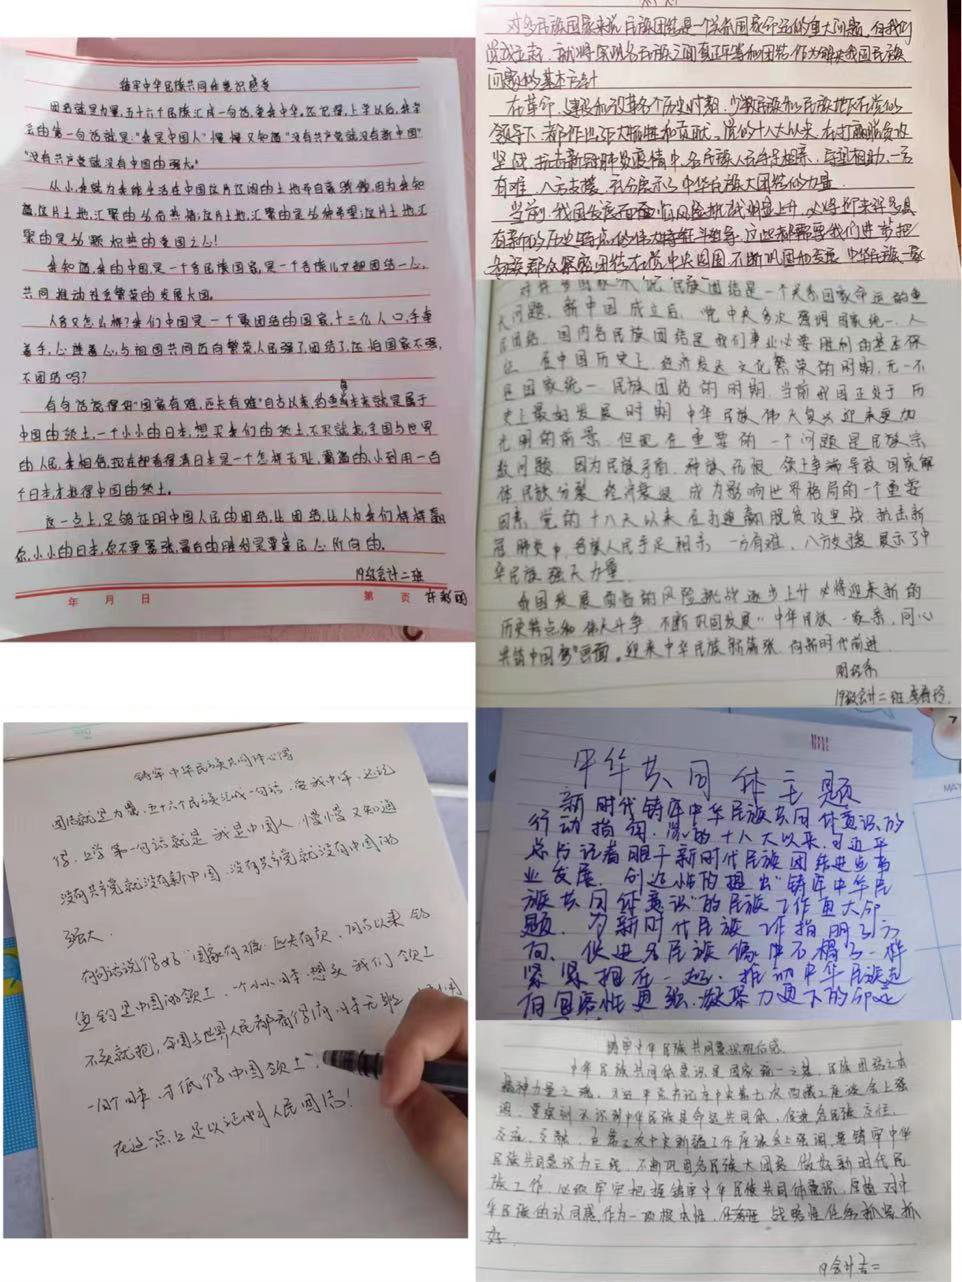 铸牢中华民族共同体意识感受
团结就是力量,五十六个民族汇成一句话,爱我中华。还记得,上学以后,我学
会的第一句话就是:"我是中国人"慢慢又知道"没有共产党就没有新中国"
"没有共产党就没有中国的强大。"
从小,我就为我能生活在中国这片辽阔的土地而自豪骄傲,因为我知
道,这片土地,汇聚的
聚的是
我知道,我的中国是一个多民族国家,是一个各族儿女都团结一心,
共同推动社会繁荣的发展大国。
人多又怎么样?我们中国是一个最团结的国家,十三亿人口,手牵
着手,心连着心,与祖国共同迈向繁荣,人民强了,团结了,还怕国家不强,
不团结吗?
有句话说得好"国家有难,匹夫有难"自古以来,钓鱼岛本来就是属于
中国的领土,一个小小的日本,想买我们的领土,不买就抢,全国与世界
的人民,我相信,现在都看得清日本是一个怎样无耻,
个日本,才抵得中国的领土。
这一点上,足够证明中国人民的团结,让团结,让人为我们
你,小小的日本,你不要嚣张,最后的胜利是要靠民心所向的。
19级会计二班
年 月 日 第 页 许彩丽
对多民族国家来说,民族团结是一个关系国家命运的重大问题,在我们
党成立起,就将实现各民族之间真正平等和团结作为解决我国民族
问题的基本方针
在革命、建设和改革各个历史时期,少数民族和民族地区在党的
领导下,都作出巨大牺牲和贡献,党的十八大以来,在打赢脱贫攻
坚战,抗击新冠肺炎疫情中,各民族人民手足相亲、守望相助,一方
有难,八方支援,充分展示了中华民族大团结的力量。
当前,我国发展面临风险挑战明显上升,必将迎来许多具
有新的历史特点的伟大
各族群众紧密团结在党中央周围,不断巩固和发展"中华民族一家
民族团结是一个关系国家命运的重
大问题,新中国成立后,党中央多次强调国家统一、人
民团结,国内各民族团结是我们事业必要胜利的基本保
证 在中国历史上,经济发达 文化繁荣的时期,无一不
是国家统一 民族团结的时期,当前我国正处于历
史上最好发展时期 中华民族伟大复兴迎来更加
光明的前景,但现在重要的一个问题是民族宗
教问题 因为民族矛盾,种族 领土争端导致国家解
体 民族分裂 经济衰退 成为影响世界格局的一个重要
因素,党的十八大以来在打赢脱贫攻坚战,抗击新
冠肺炎中,各族人民手足相亲 一方有难,八方支援 展示了中
华民族强大力量
我国发展面临的风险挑战逐步上升 必将迎来新的
历史特点和伟大斗争 不断巩固发展"中华民族一家亲,同心
共铸中国梦"画面。迎来中华民族新篇章,向新时代前进
19级会计二班
铸牢中华民族共同体心得
团结就是力量,五十六个民族汇成一句话,爱我中华,还记
得,上学第一句话就是 我是中国人 慢慢又知道
没有共产党就没有新中国,没有共产党就没有中国的
强大.
有句话说得好"国家有难 匹夫有责,自古以来 钓
鱼钓是中国的领土,一个小小日本 想买我们领土
不买就抢,全国与世界人民都看得清 日本无耻
个日本,才抵得中国领土.
在这一点上足以证明人民团结!
中华共同体主题
新时代铸牢中华民族共同体意识的
行动指南.党的十八大以来,习近平
总书记着眼于新时代民族团结进步事
业发展,创造性的提出"铸牢中华民
族共同体意识"的民族工作重大命
题,为新时代民族工作指明了方
向、促进各民族像石榴子一样
紧紧拥在一起,推动中华民族走
向包容性更强,凝聚力更
铸牢中华民族共同意识观后感
中华民族共同体意识是国家统一之基,民族团结之本
精神力量之魂,习近平总书记在中央第七次西藏工作座谈会上强
调,要深刻认识到中华民族是命运共同体,促进各民族交往、
交流、交融,在第三次中央新疆工作座谈会上强调,要铸牢中华
民族共同意识为主线,不断巩固各民族大团结 做好新时代民
族工作,必须牢牢把握铸牢中华民族共同体意识,增强对中
华民族的认同感,作为一项根本性、
好